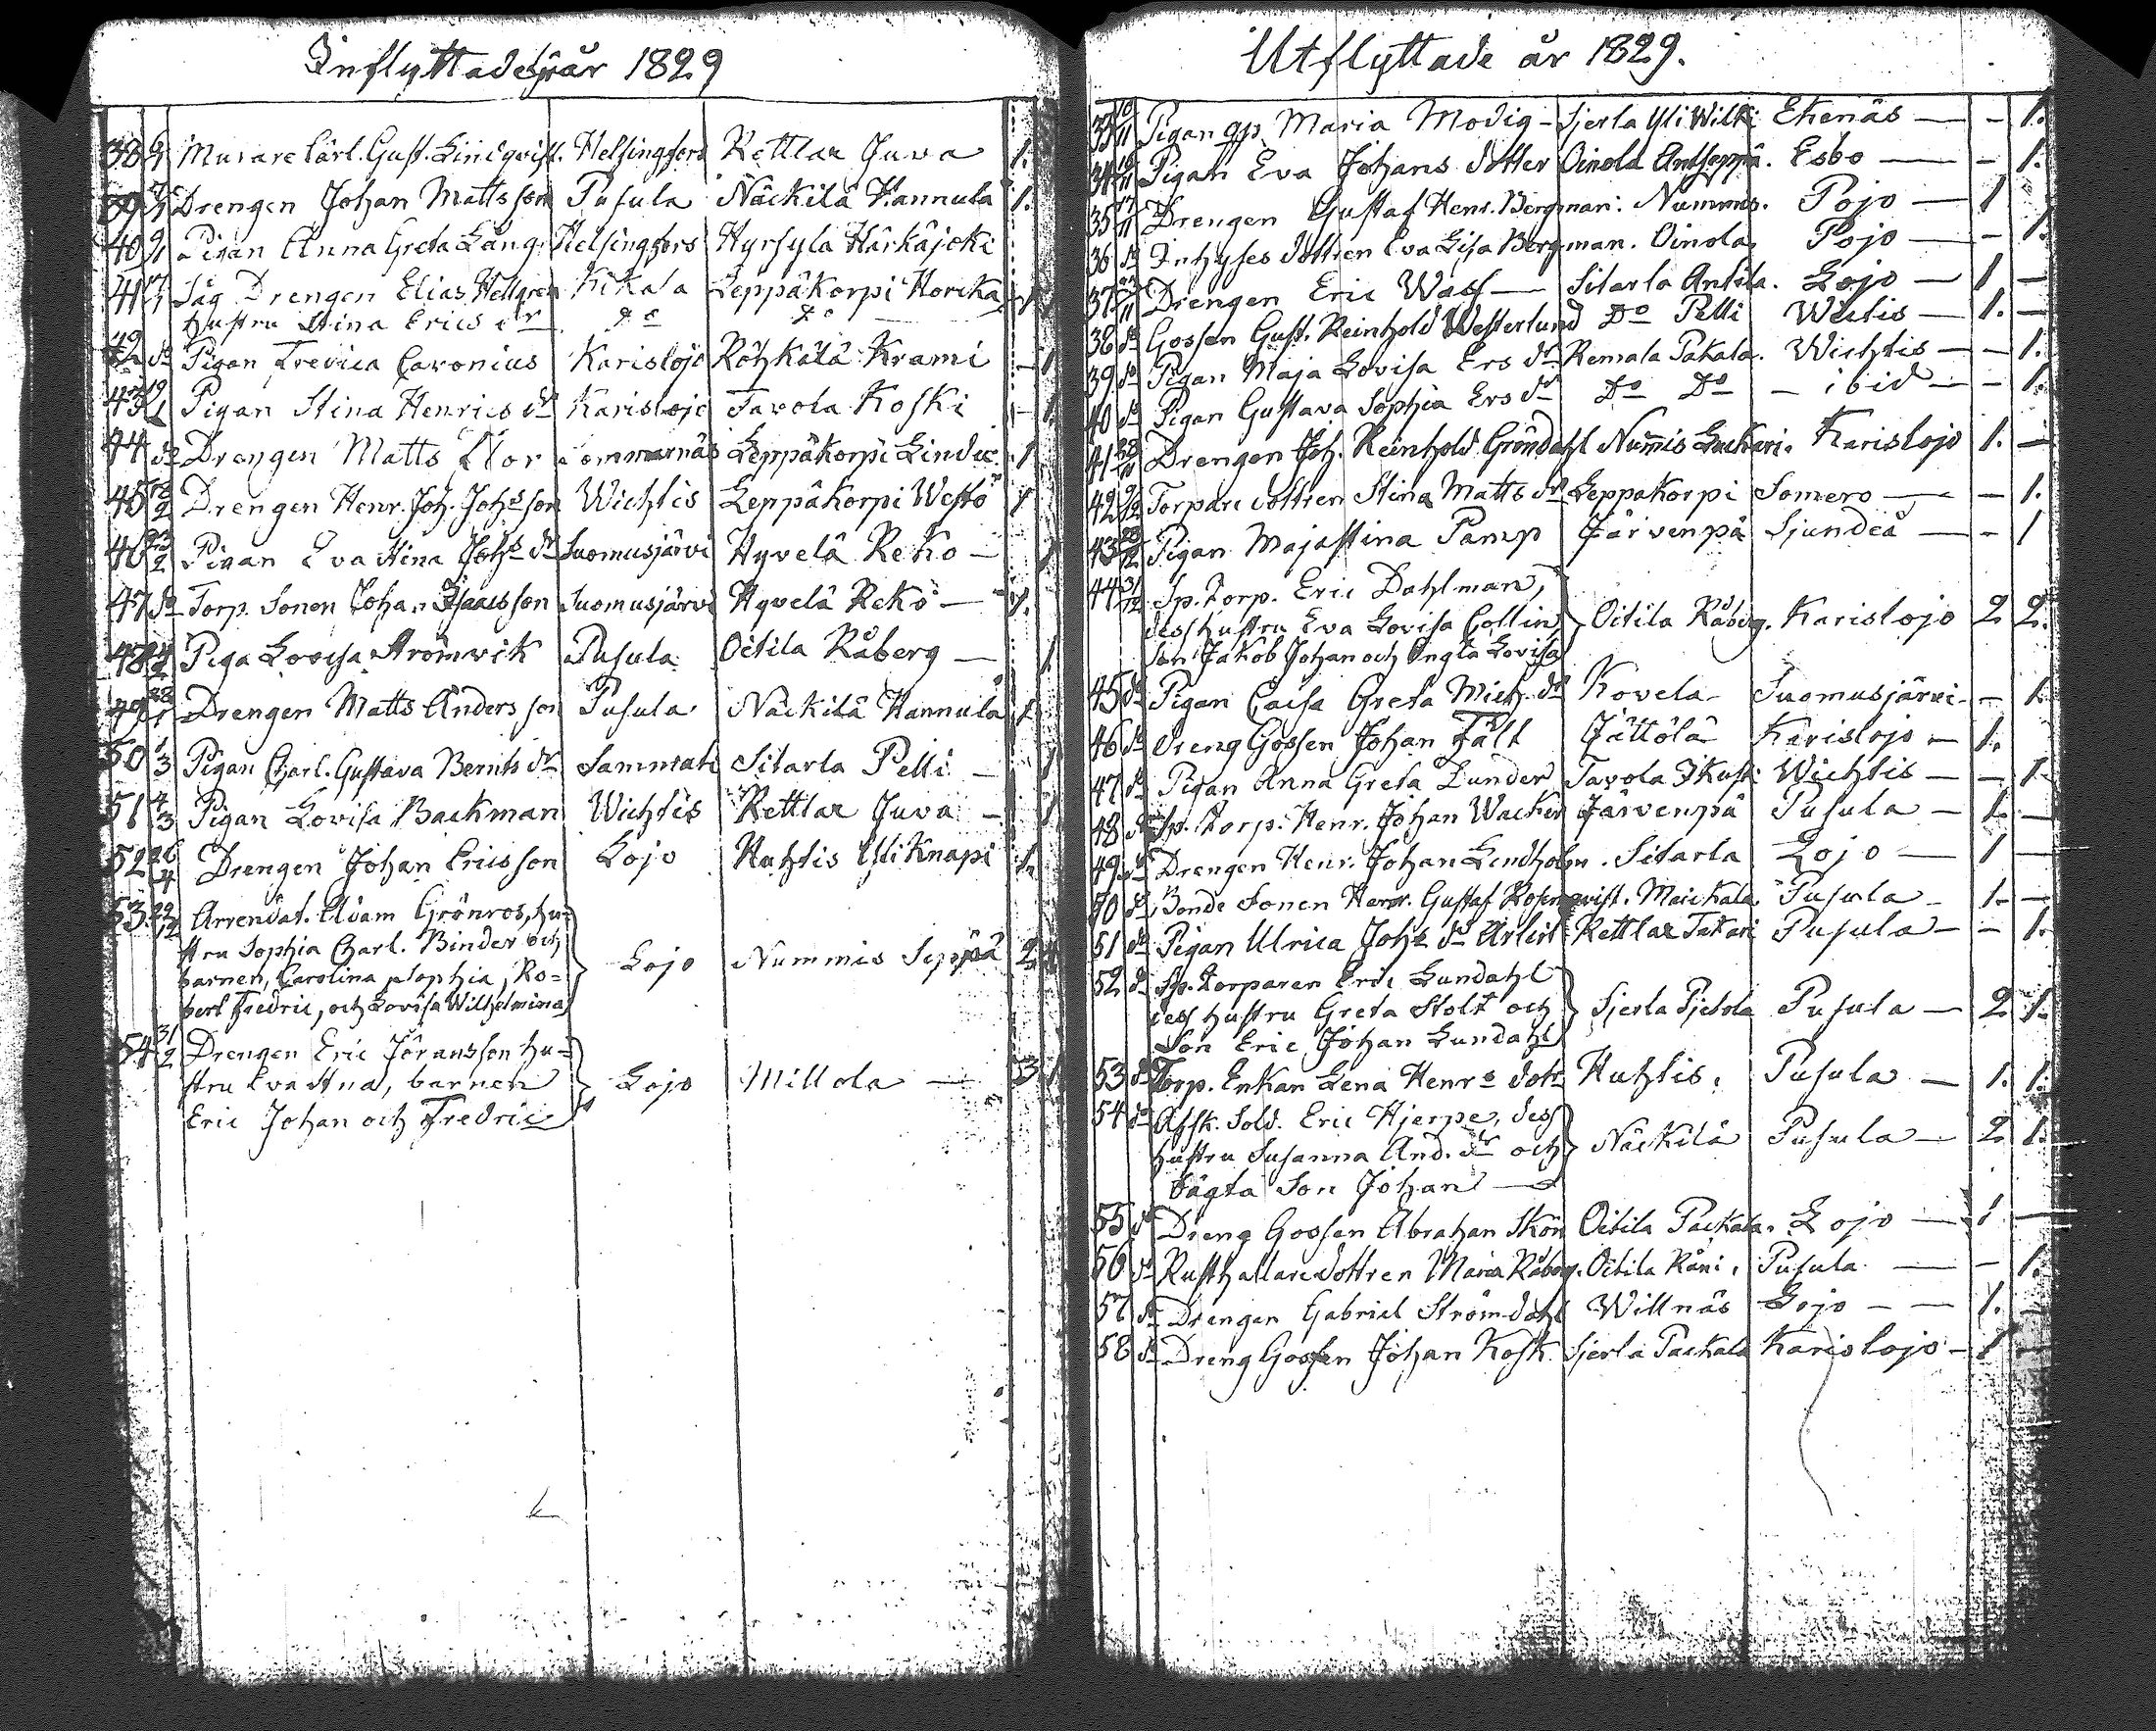 Inflyttade år 1829
38 Murare Carl. Gust. Lindqvist. Helsingfors Kettlar Juva 1.
39 Drengen Johan Mattsson Pusula Näckilä Hannula 1.
40 Pigan Anna Greta Lång Helsingfors Hyrsylä Härkäjoki
41 Såg Drengen Elias Hellgren Kikala Leppäkorpi Horcka 1
hustru Stina Erics dr do do
42 do Pigan Fredica Caronius Karislojo Röhkälä Krami - 1
43 Pigan Stina Henrics dr Karislojo Tavola Koski - 1
44 do Drengen Matts Flor Leppäkorpi Lindu 1
45 Drengen Henr. Joh. Johsson Wichtis Leppäkorpi Westö 1
46 Pigan Eva Stina Johs dr Suomusjärvi Hyvelä Reko - 1
47 do Torp. Sonen Johan Isaacsson Suomusjärvi Hyvelä Reko - 1.
48 Piga Lovisa Strömvik Pusula Oitila Råberg - 1
49 Drengen Matts Andersson Pusula Näckilä Hannula 1.
50 1/3 Pigan Charl. Gustava Bernts dr Sammati Sitarla Pelli - 1
51 4/3 Pigan Lovisa Backman Wichtis Kettlar Juva - 1
52 26/4 Drengen Johan Ericsson Lojo Huhtis Yli Knapi 1.
53. Arrendat. Adam Grönros, hu=
stru Sophia Charl. Binder och
barnen, Carolina Sophia, Ro= Lojo Nummis Seppä 2 4
bert Fredric, och Lovisa Wilhelmina
54 Drengen Eric Jöransson hu=
stru Eva Stina, barnen Lojo Millola - 3 1
Eric Johan och Fredric
Utflyttade år 1829.
33 10/11 Pigan Maria Modig - Sjerla Yli Wilki Ekenäs - - 1.
34 Pigan Eva Johans dotter Oinola Antseppä. Esbo - - 1.
35 17/11 Drengen Gustaf Henr. Bergman. Nummis. Pojo - 1
36 do Inhyses dottren Eva Lisa Bergman. Oinola. Pojo - - 1.
37 Drengen Eric Wass - Sitarla Antila. Lojo - 1 -
38 do Gossen Gust. Reinhold Westerlund Do Pelli Wichtis - 1. -
39 do Pigan Maja Lovisa Ers dr Remala Pakala. Wichtis - - 1.
40 do Pigan Gustava Sophia Ers dr Do Do - ibid - - 1.
41 28/11 Drengen Joh. Reinhold Gröndahl Nummis Luckari. Karislojo 1. -
42 Torpare dottren Stina Matts dr Leppäkorpi Somero - - 1.
43 Pigan Maja Stina Pamp Järvenpä Sjundeå - - 1
44 31/12 Sp. Torp. Eric Dahlman,
dess hustru Eva Lovisa Collin Oitila Råberg. Karislojo 2 2.
Son Jakob Johan och Ingla Lovisa
45 do Pigan Caisa Greta Mich. dr Kovela - Suomusjärvi - - 1.
46 do Dreng Gossen Johan Fält Jättölä Karislojo - 1.
47 do Pigan Anna Greta Lunder Tavola Wichtis - - 1.
48 do Sp. Torp. Henr. Johan Wacker Järvenpä Pusula - 1. -
49 do Drengen Henr. Johan Lindholm. Sitarla Lojo - 1 -
50 do Bonde Sonen Henr. Gustaf Rosenqvist. Maickala Pusula - 1. -
51 do Pigan Ulrica Johs dr Kettlar Takari Pusula - - 1.
52 do Sp. Torparen Eric Lundahl
dess hustru Greta Stolt och Sjerla Pjetola Pusula - 2 1.
Son Eric Johan Lundahl
53 do Torp. Enkan Lena Henrs dotr Huhtis, Pusula - 1. 1.
54 do Afsk. Sold. Eric Hjerpe, dess
hustru Susanna And. dr och Näckilä Pusula - 2. 1.
bägta Son Johan -
55 do Dreng Gossen Abraham Skön Oitila Packala. Lojo - 1 -
56 do Rusthållaredottren Maria Råberg. Oitila Råni, Pusula - - 1.
57 do Drengen Gabriel Strömdahl Willnäs Lojo - - 1. -
58 do Dreng Gossen Johan Kosk. Sjerla Packala Karislojo - 1 -